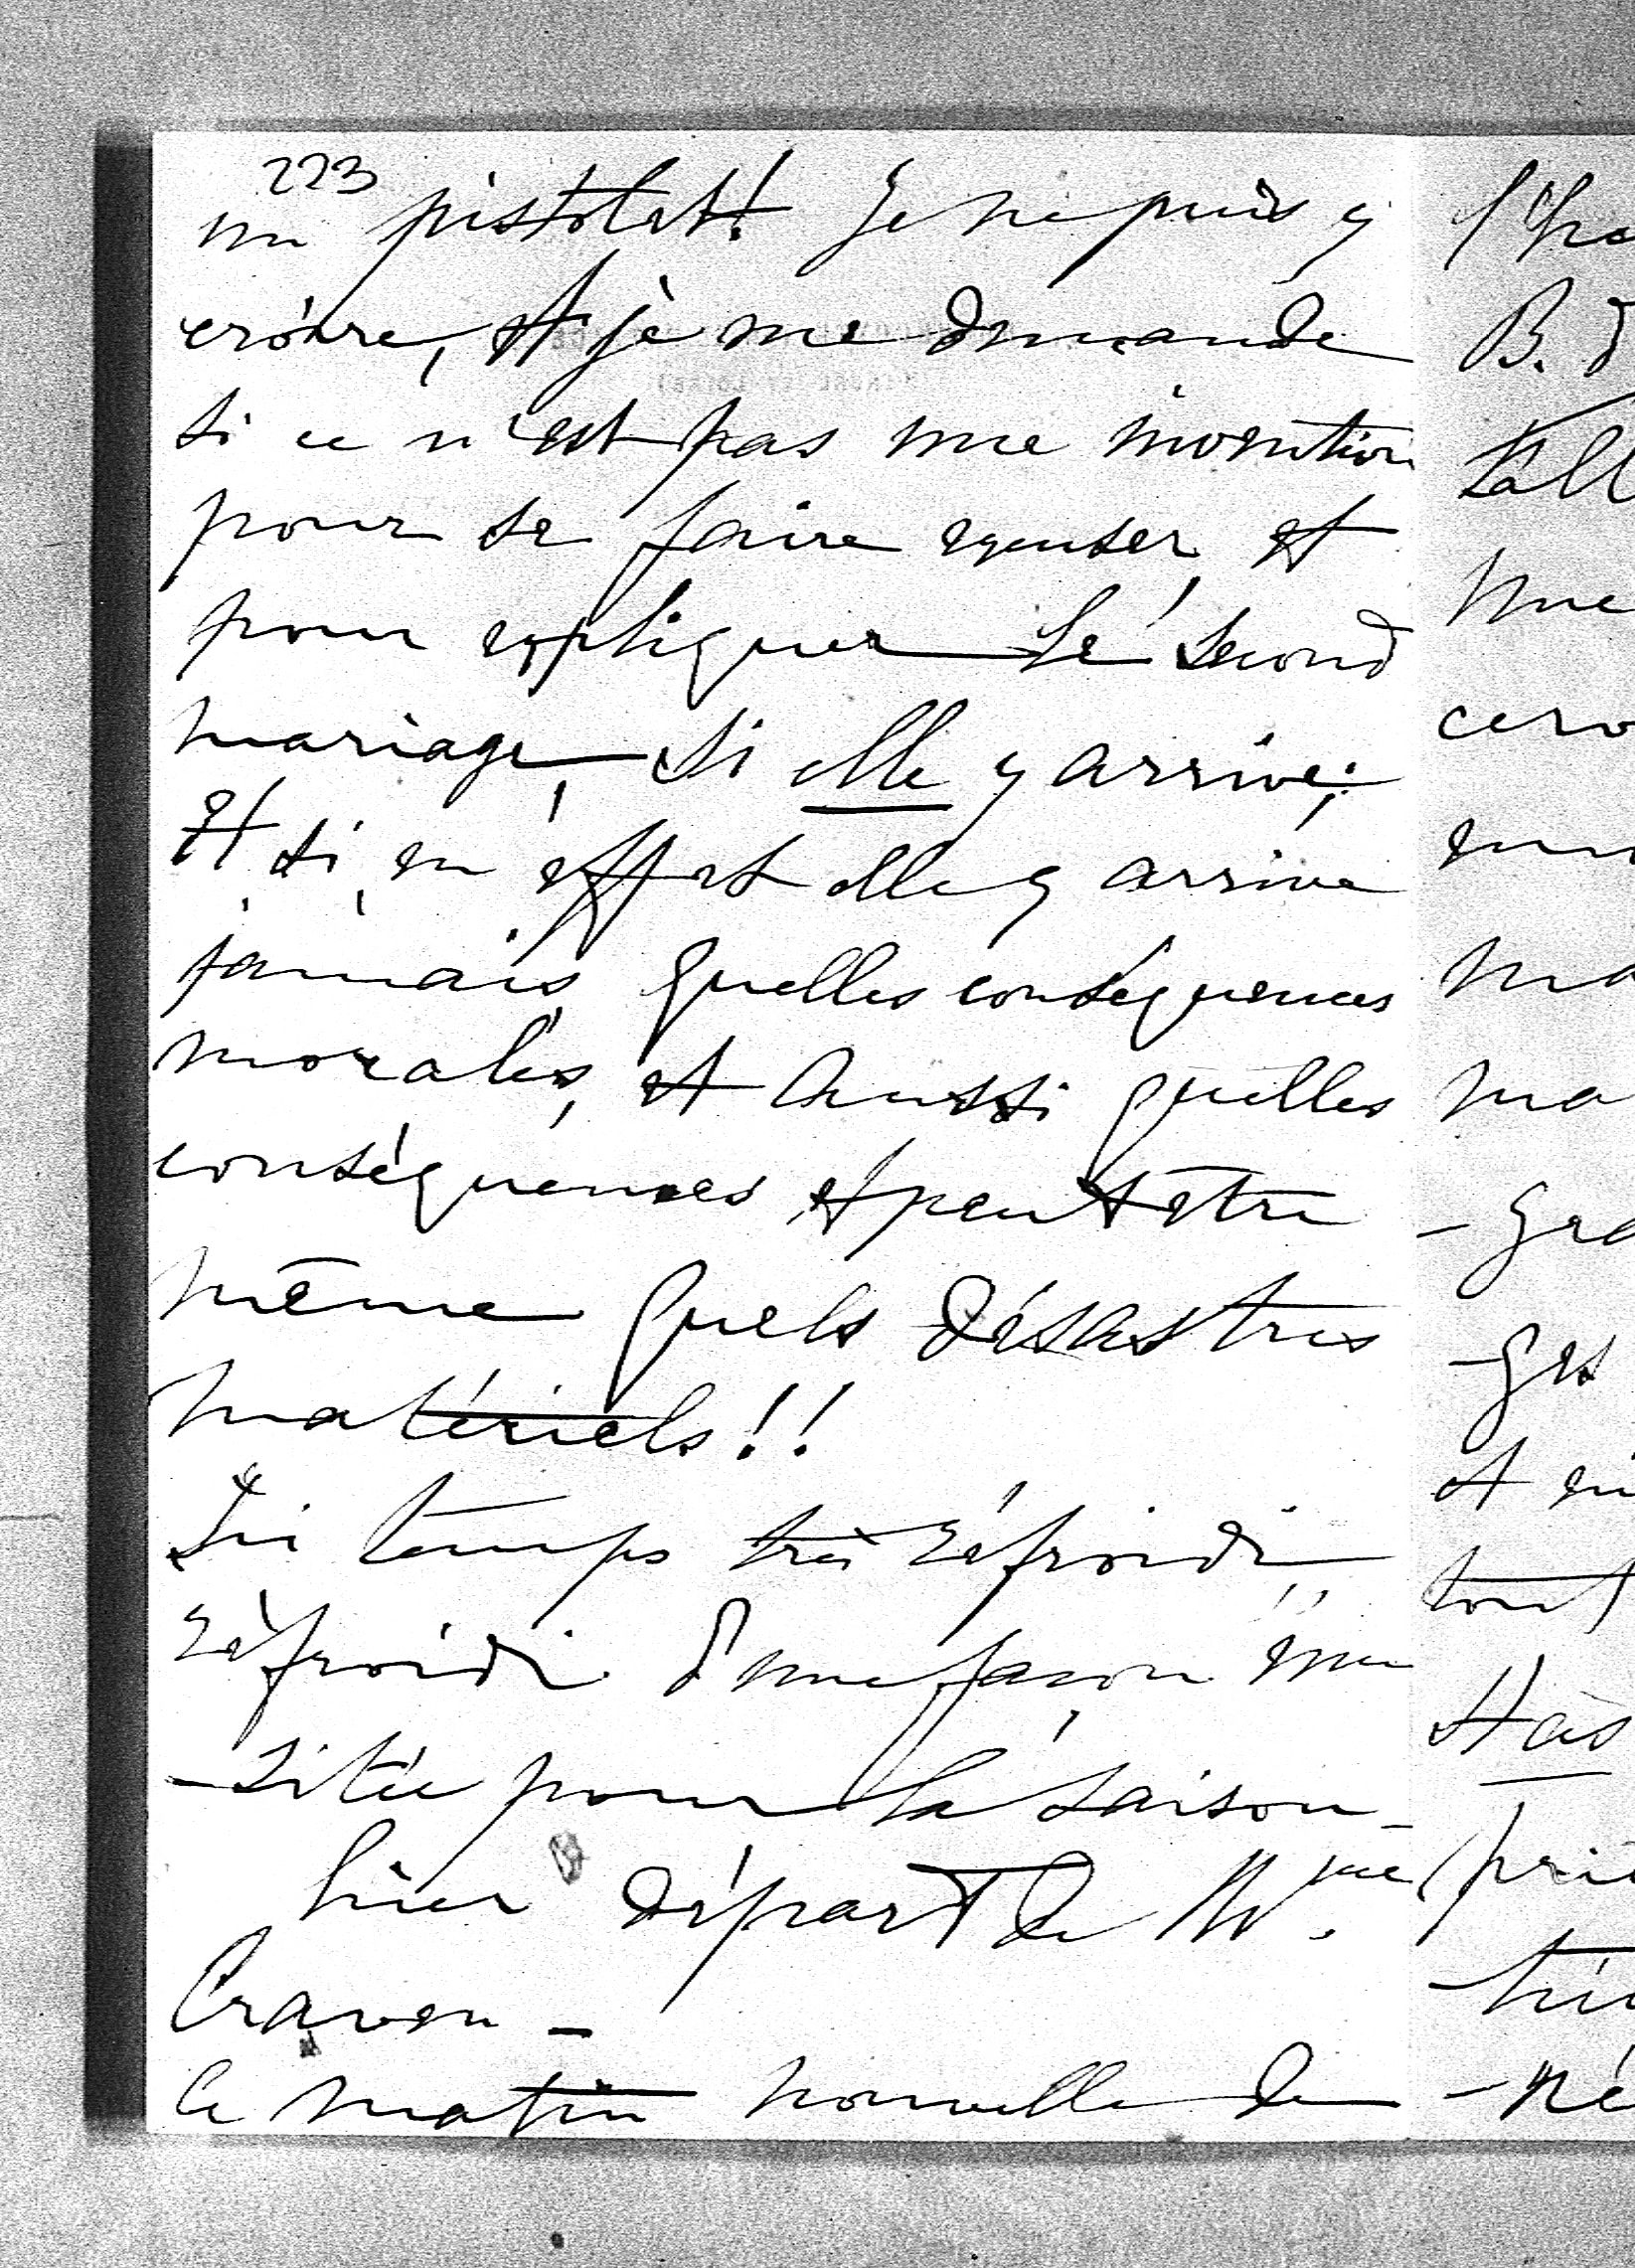 223
un pistolet! Je ne puis y
croire, et je me demande
si ce n'est pas une invention
pour se faire excuser et
pour expliquer le second
mariage, si elle y arrive;
Et si, en effet elle y arrive
jamais, quelles conséquences
morales, et aussi quelles
conséquences, et peut être
même quels désastres
matériels!!
Ici temps très réfroidi,
réfroidi d'une façon inu
-sitée pour la saison -
hier départ de Mme
Craven -
Ce matin nouvelle de
B.
cero
ma
ma
et
tout